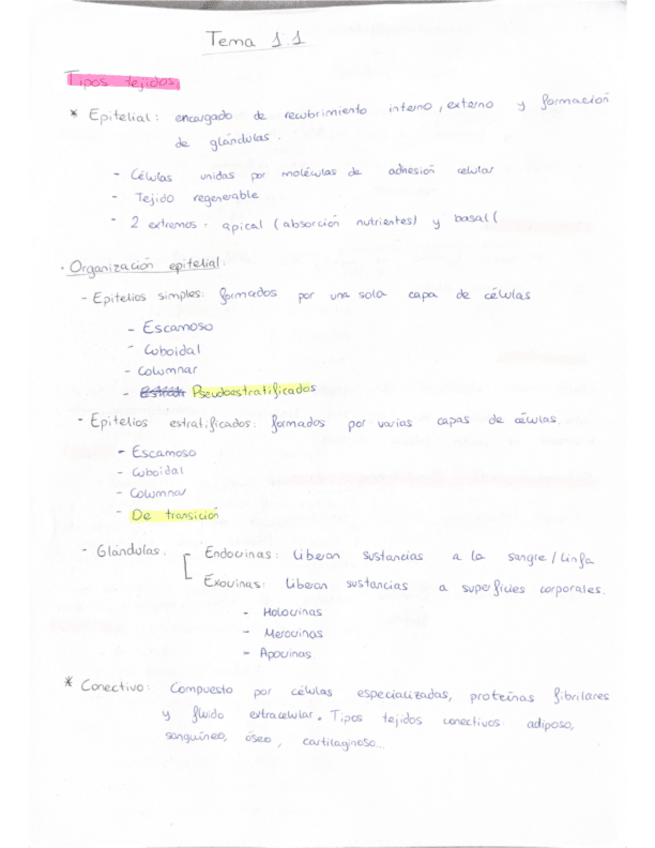 Tema 1.1
Tipos tejidos
* Epitelial: encargado de recubrimiento interno, externo y formación
de glándulas.
- Células unidas por moléculas de adhesión celular
- Tejido regenerable
- 2 extremos: apical (absorción nutrientes) y basal (
· Organización epitelial:
- Epitelios simples: formados por una sola capa de células
- Escamoso
- Cuboidal
- Columnar
- Pseudoestratificados
- Epitelios estratificados: formados por varias capas de células.
- Escamoso
- Cuboidal
- Columnar
- De transición
- Glándulas: [ Endocrinas: liberan sustancias a la sangre/linfa
Exocrinas: liberan sustancias a superficies corporales.
- Holocrinas
- Merocrinas
- Apocrinas
* Conectivo: Compuesto por células especializadas, proteínas fibrilares
y fluido extracelular. Tipos tejidos conectivos: adiposo,
sanguíneo, óseo, cartilaginoso...